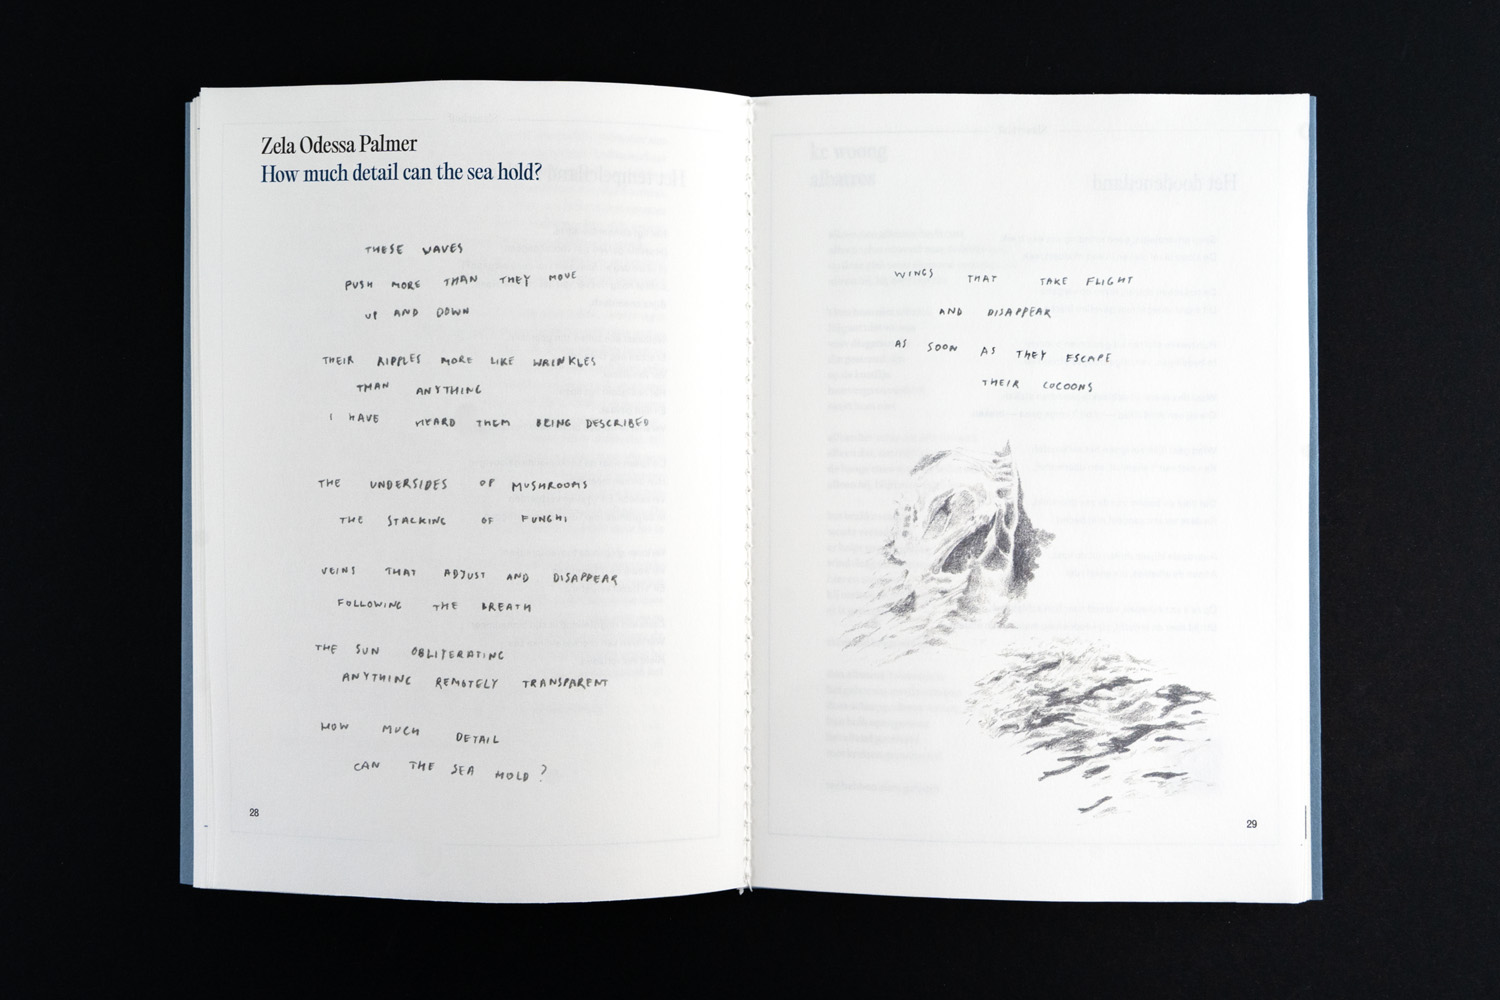 Zela Odessa Palmer
How much detail can the sea hold?
THESE WAVES
PUSH MORE THAN THEY MOVE
UP AND DOWN
THEIR RIPPLES MORE LIKE WRINKLES
THAN ANYTHING
I HAVE HEARD THEM BEING DESCRIBED
THE UNDERSIDES OF MUSHROOMS
THE STACKING OF FUNGHI
VEINS THAT ADJUST AND DISAPPEAR
FOLLOWING THE BREATH
THE SUN OBLITERATING
ANYTHING REMOTELY TRANSPARENT
HOW MUCH DETAIL
CAN THE SEA HOLD?
28
WINGS THAT TAKE FLIGHT
AND DISAPPEAR
AS SOON AS THEY ESCAPE
THEIR COCOONS
29